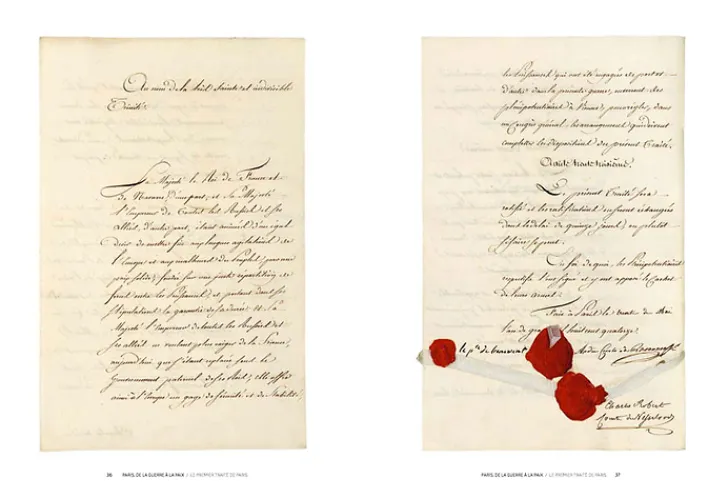 Au nom de la très Sainte et indivisible
Trinité.
Sa Majesté le Roi de France et
de Navarre d'une part, et Sa Majesté
l'Empereur de toutes les Russies et ses
alliés, d'autre part, étant animés d'un égal
désir de mettre fin aux longues agitations de
l'Europe et aux malheurs des Peuples, par une
paix solide, fondée sur une juste répartition de
forces entre les Puissances, et portant dans ses
Stipulations la garantie de sa durée; et Sa
Majesté l'Empereur de toutes les Russies et
ses alliés ne voulant plus exiger de la France,
aujourd'hui que s'étant replacée sous le
Gouvernement paternel de ses Rois, elle offre
ainsi à l'Europe un gage de sécurité et de stabilité,
les Puissances qui ont été engagées de part et
d'autre dans la présente guerre, enverront des
plénipotentiaires à Vienne, pour régler, dans
un Congrès général, les arrangements qui doivent
compléter les dispositions du présent Traité.
Article trente troisième.
Le présent Traité sera
ratifié et les ratifications en seront échangées
dans le délai de quinze jours, ou plutôt
si faire se peut.
En foi de quoi, les Plénipotentiaires
respectifs l'ont signé et y ont apposé le Cachet
de leurs armes.
Fait à Paris le trente de Mai
l'an de grace huit cent quatorze.
le pce de benevent
André Comte de Rasoumoffsky
Charles Robert
Comte de Nesselrode
36 PARIS, DE LA GUERRE À LA PAIX / LE PREMIER TRAITÉ DE PARIS
PARIS, DE LA GUERRE À LA PAIX / LE PREMIER TRAITÉ DE PARIS 37